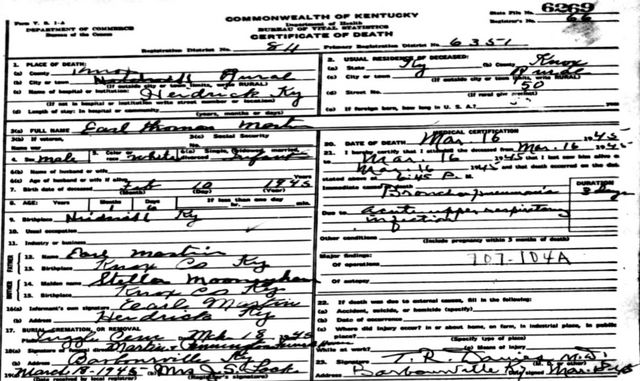 Form V. S. 1-A
DEPARTMENT OF COMMERCE
Bureau of the Census
COMMONWEALTH OF KENTUCKY
Department of Health
BUREAU OF VITAL STATISTICS
CERTIFICATE OF DEATH
State File No. 6269
Registrar's No. 66
Registration District No. 84 Primary Registration District No. 6351
1. PLACE OF DEATH:
(a) County Knox
(b) City or town Rural
(If outside city or town limits, write RURAL)
(c) Name of hospital or institution: Hendrick Ky
(If not in hospital or institution write street number or location)
(d) Length of stay: In hospital or community
(years, months or days)
2. USUAL RESIDENCE OF DECEASED:
(a) State Ky (b) County Knox
(c) City or town Rural
(If outside city or town limits, write RURAL)
(d) Street No. 50
(If rural give precinct)
(e) If foreign born, how long in U. S. A.?
3(a) FULL NAME Earl Thomas Martin
3(b) If veteran, name war 3(c) Social Security No.
4. Sex Male 5. Color or race White 6(a) Single, widowed, married, divorced Infant
6(b) Name of husband or wife
6(c) Age of husband or wife if alive Years
7. Birth date of deceased Feb 10 1945
(Month) (Day) (Year)
8. AGE: Years Months Days If less than one day
1 6 hr. min.
9. Birthplace Ky
10. Usual occupation
11. Industry or business
FATHER
12. Name Earl Martin
13. Birthplace Knox Co Ky
MOTHER
14. Maiden name Stella
15. Birthplace Knox Co Ky
16(a) Informant's own signature Earl Martin
(b) Address Hendrick Ky
17. BURIAL, CREMATION, OR REMOVAL
Place Cem Mch 18 1945
18(a) Signature of funeral director
(b) Address Barbourville Ky
19(a) March 18-1945 Mrs J. S. Lock
(Date received by local registrar)
MEDICAL CERTIFICATION
20. DATE OF DEATH Mar. 16 1945
21. I hereby certify that I attended the deceased from Mar. 16 1945
to Mar. 16 1945 that I last saw him alive on
Mar. 16 1945 and that death occurred on the date
stated above at 6:45 P. M.
Immediate cause Bronchopneumonia
DURATION
3 days
Due to acute upper respiratory
infection
Other conditions
(Include pregnancy within 3 months of death)
Major findings:
Of operations 107-104A
Of autopsy
22. If death was due to external causes, fill in the following:
(a) Accident, suicide, or homicide (specify)
(b) Date of occurrence
(c) Where did injury occur? in or about home, on farm, in industrial place, in public place?
(Specify type of place)
While at work?
23. Signature T. R. Davies M. D.
Address Barbourville Ky Mar-18-45